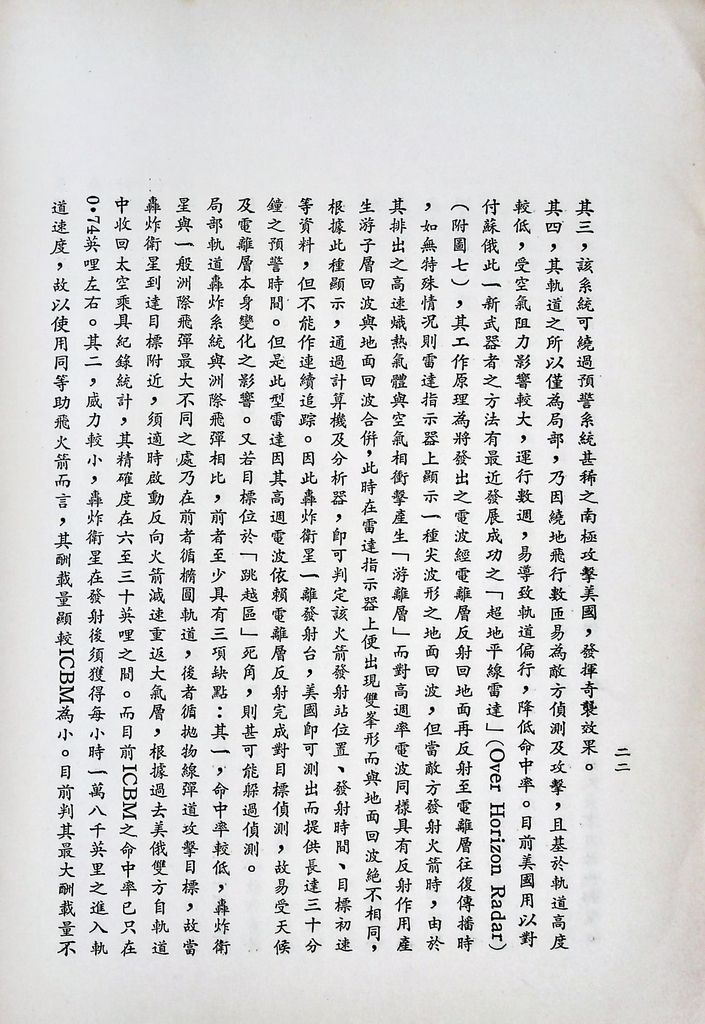 二二
其三，該系統可繞過預警系統甚稀之南極攻擊美國，發揮奇襲效果。
其四，其軌道之所以僅為局部，乃因繞地飛行數匝易為敵方偵測及攻擊，且基於軌道高度
較低，受空氣阻力影響較大，運行數週，易導致軌道偏行，降低命中率。目前美國用以對
付蘇俄此一新武器者之方法有最近發展成功之「超地平線雷達」(Over Horizon Radar)
（附圖七），其工作原理為將發出之電波經電離層反射回地面再反射至電離層往復傳播時
，如無特殊情況則雷達指示器上顯示一種尖波形之地面回波，但當敵方發射火箭時，由於
其排出之高速熾熱氣體與空氣相衝擊產生「游離層」而對高週率電波同樣具有反射作用產
生游子層回波與地面回波合併，此時在雷達指示器上便出現雙峯形而與地面回波絕不相同，
根據此種顯示，通過計算機及分析器，即可判定該火箭發射站位置、發射時間、目標初速
等資料，但不能作連續追踪。因此轟炸衛星一離發射台，美國即可測出而提供長達三十分
鐘之預警時間。但是此型雷達因其高週電波依賴電離層反射完成對目標偵測，故易受天候
及電離層本身變化之影響。又若目標位於「跳越區」死角，則甚可能躲過偵測。
局部軌道轟炸系統與洲際飛彈相比，前者至少具有三項缺點：其一，命中率較低，轟炸衛
星與一般洲際飛彈最大不同之處乃在前者循橢圓軌道，後者循拋物線彈道攻擊目標，故當
轟炸衛星到達目標附近，須適時啟動反向火箭減速重返大氣層，根據過去美俄雙方自軌道
中收回太空乘具紀錄統計，其精確度在六至三十英哩之間。而目前ICBM之命中率已只在
0·74英哩左右。其二，威力較小，轟炸衛星在發射後須獲得每小時一萬八千英里之進入軌
道速度，故以使用同等助飛火箭而言，其酬載量顯較ICBM為小。目前判其最大酬載量不